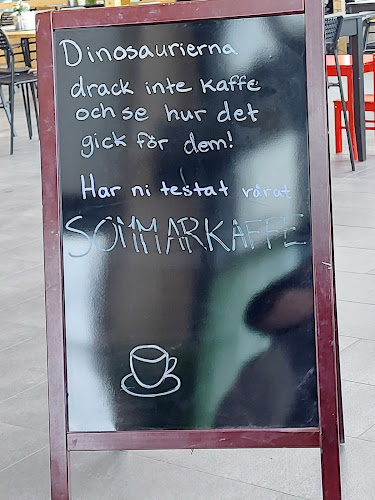 Dinosaurierna
drack inte kaffe
och se hur det
gick för dem!
Har ni testat vårat
SOMMARKAFFE